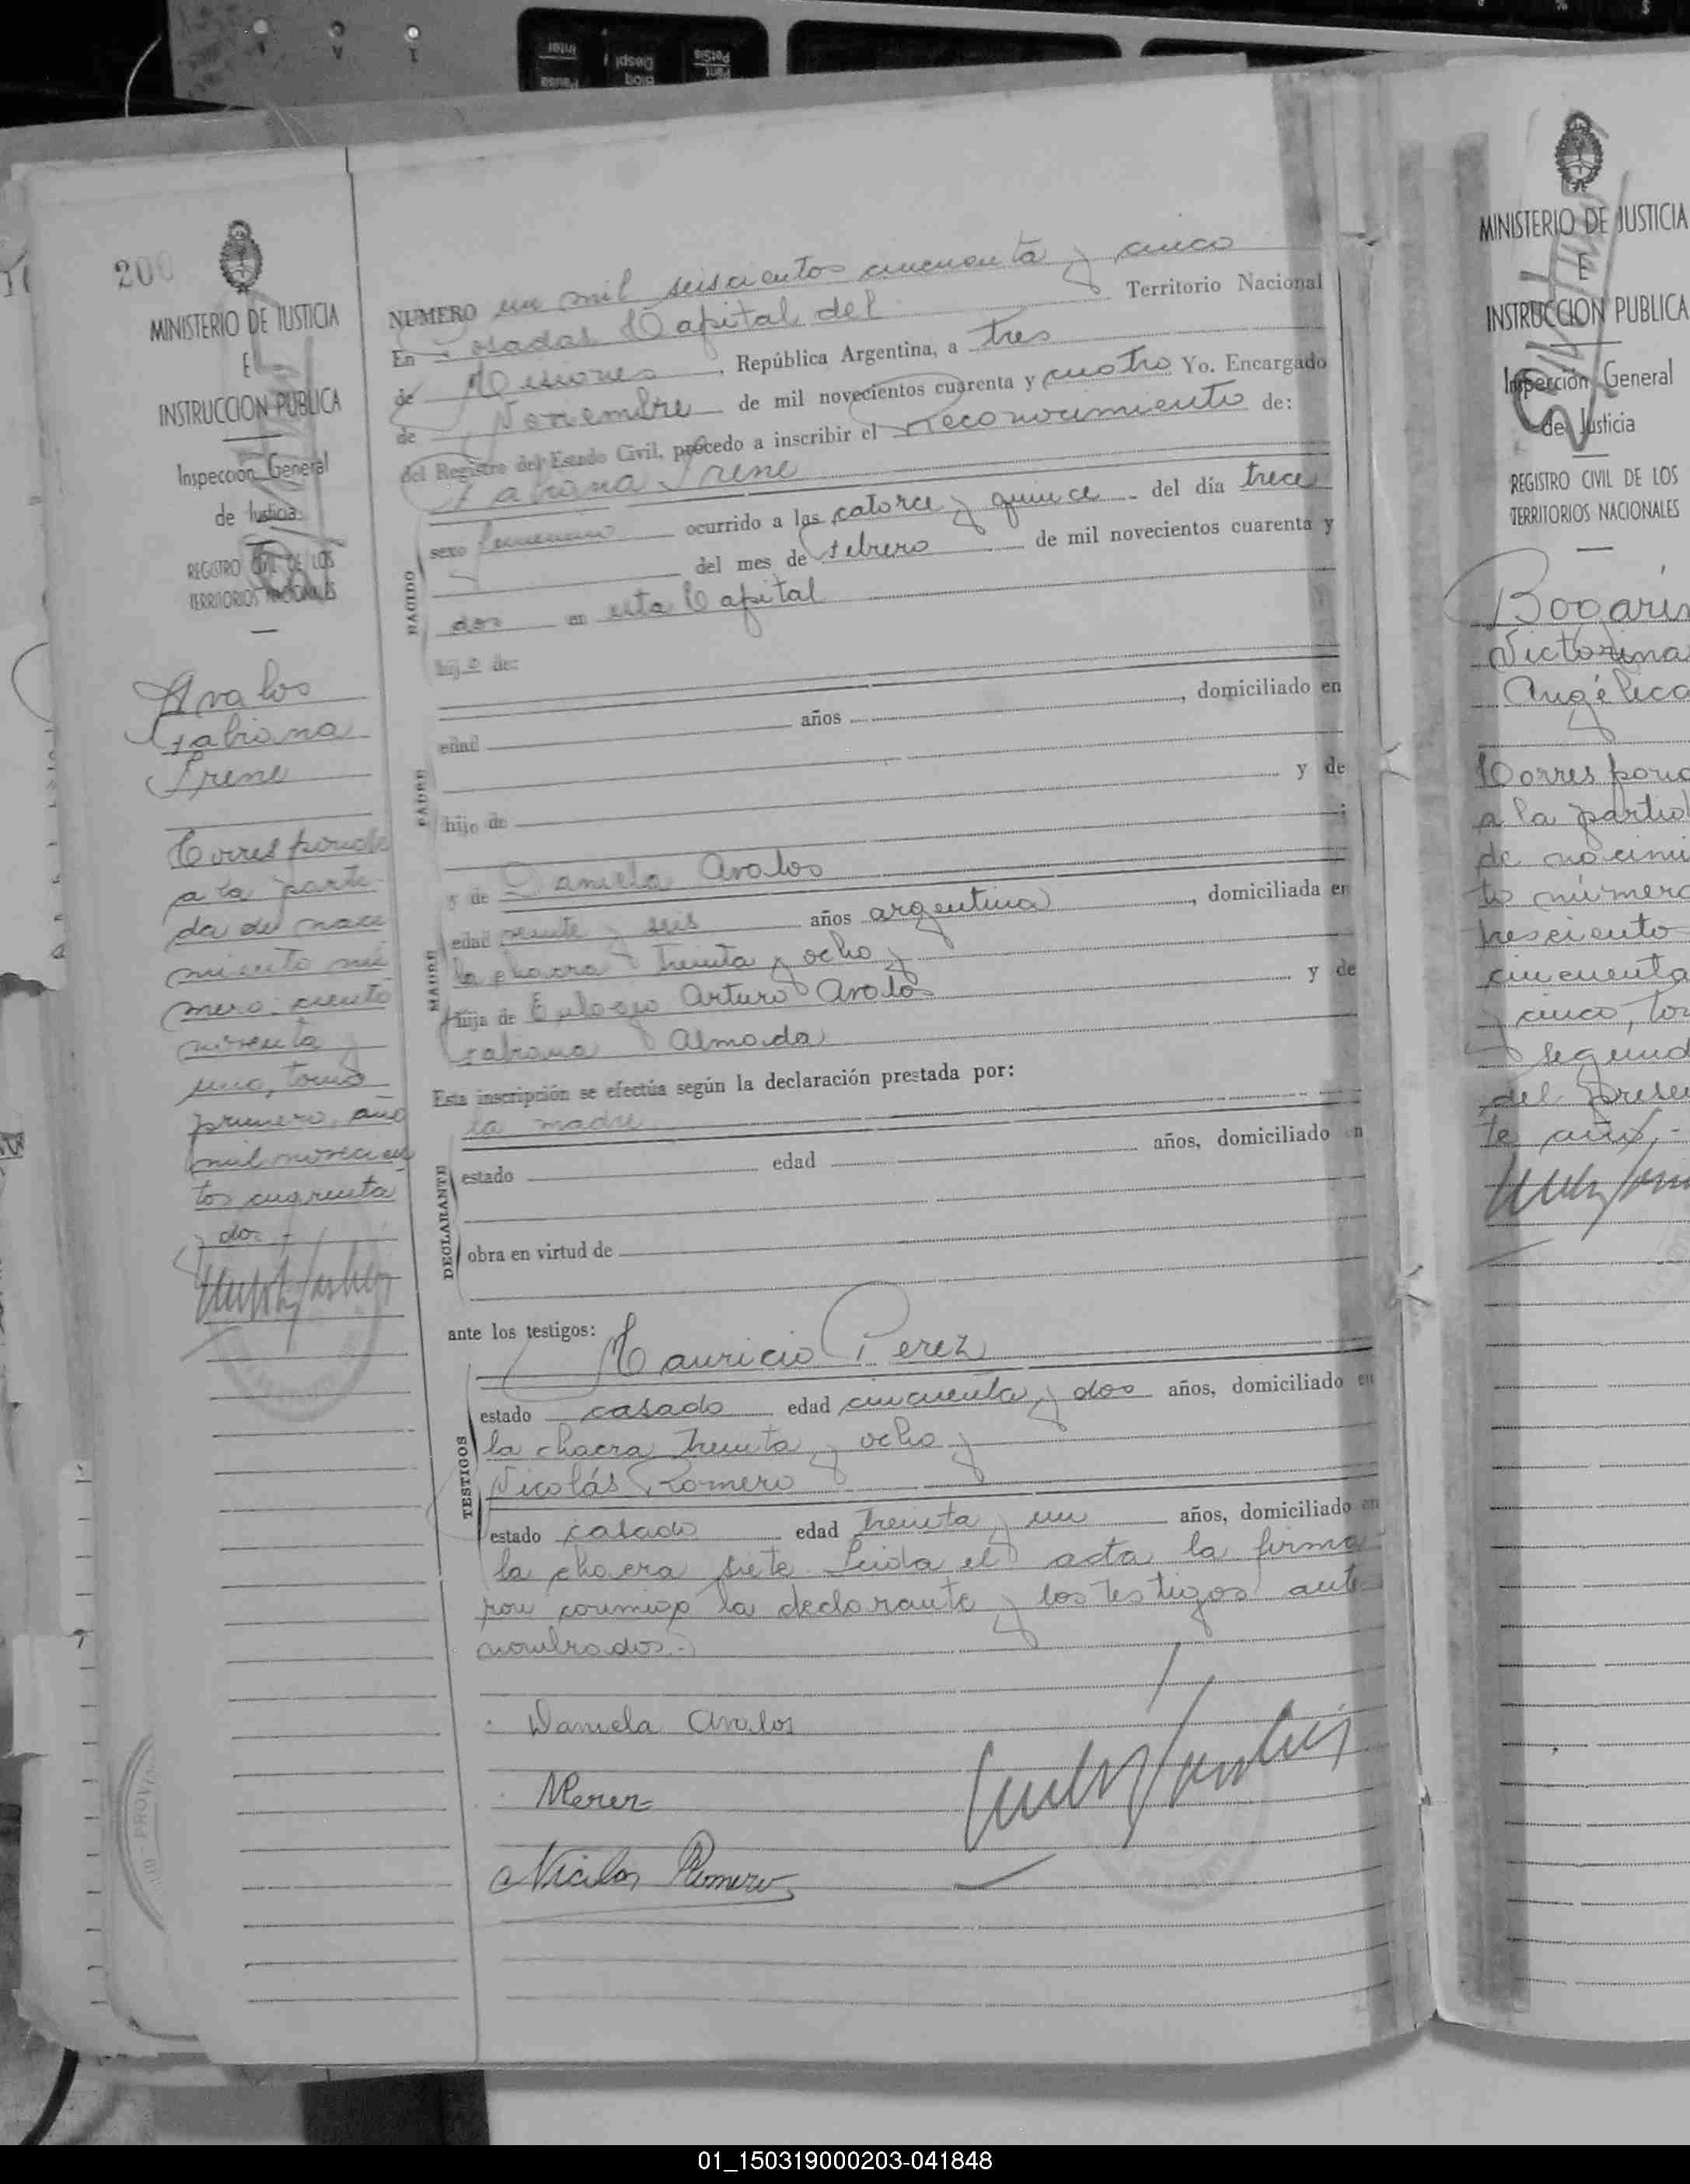 200
MINISTERIO DE JUSTICIA
E
INSTRUCCION PUBLICA
Inspección General
de Justicia
REGISTRO CIVIL DE LOS
TERRITORIOS NACIONALES
Avalos
Fabiana
Irene
Corresponde
a la parti-
da de naci
miento nú
mero ciento
noventa y
uno, tomo
primero, año
mil novecien
tos cuarenta
y dos.-
NUMERO un mil seiscientos cincuenta y cinco
En Posadas Capital del Territorio Nacional
de Misiones, República Argentina, a tres
de Noviembre de mil novecientos cuarenta y cuatro Yo, Encargado
del Registro del Estado Civil, procedo a inscribir el reconocimiento de:
Fabiana Irene
NACIDO
sexo femenino ocurrido a las catorce y quince del día trece
del mes de febrero de mil novecientos cuarenta y
dos en esta Capital
hijo de:
PADRE
edad años , domiciliado en
hijo de y de
;
y de Daniela Avalos
MADRE
edad veinte y seis años argentina , domiciliada en
la chacra treinta y ocho y
hija de Eulogio Arturo Avalos y de
Fabiana Almada
Esta inscripción se efectúa según la declaración prestada por:
la madre
DECLARANTE
estado edad años, domiciliado en
obra en virtud de
ante los testigos:
Mauricio Perez
TESTIGOS
estado casado edad cincuenta y dos años, domiciliado en
la chacra treinta y ocho y
Nicolás Romero
estado casado edad treinta y un años, domiciliado en
la chacra siete. Leida el acta la firma
ron conmigo la declarante y los testigos ante
nombrados.-
Daniela Avalos
MPerez
Nicolas Romero
MINISTERIO DE JUSTICIA
E
INSTRUCCION PUBLICA
Inspección General
de Justicia
REGISTRO CIVIL DE LOS
TERRITORIOS NACIONALES
Bogarin
Victorina
Angélica
Correspond
a la partid
de nacimi
to número
tresciento
cincuenta
y cinco, tom
segund
del presen
te año.-
01_150319000203-041848